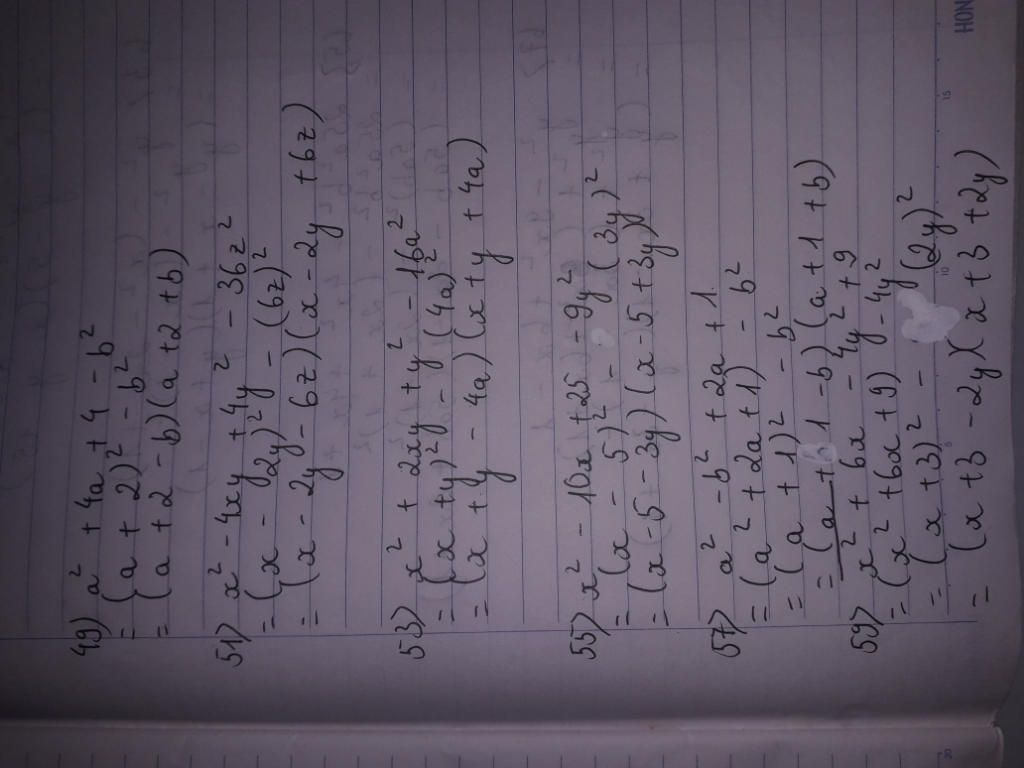 49) a² + 4a + 4 - b²
= (a + 2)² - b²
= (a + 2 - b)(a + 2 + b)
51) x² - 4xy + 4y² - 36z²
= (x - 2y)² - (6z)²
= (x - 2y - 6z)(x - 2y + 6z)
53) x² + 2xy + y² - 16a²
= (x + y)² - (4a)²
= (x + y - 4a)(x + y + 4a)
55) x² - 10x + 25 - 9y²
= (x - 5)² - (3y)²
= (x - 5 - 3y)(x - 5 + 3y)
57) a² - b² + 2a + 1
= (a² + 2a + 1) - b²
= (a + 1)² - b²
= (a + 1 - b)(a + 1 + b)
59) x² + 6x - 4y² + 9
= (x² + 6x + 9) - 4y²
= (x + 3)² - (2y)²
= (x + 3 - 2y)(x + 3 + 2y)
5
10
15
20
HON